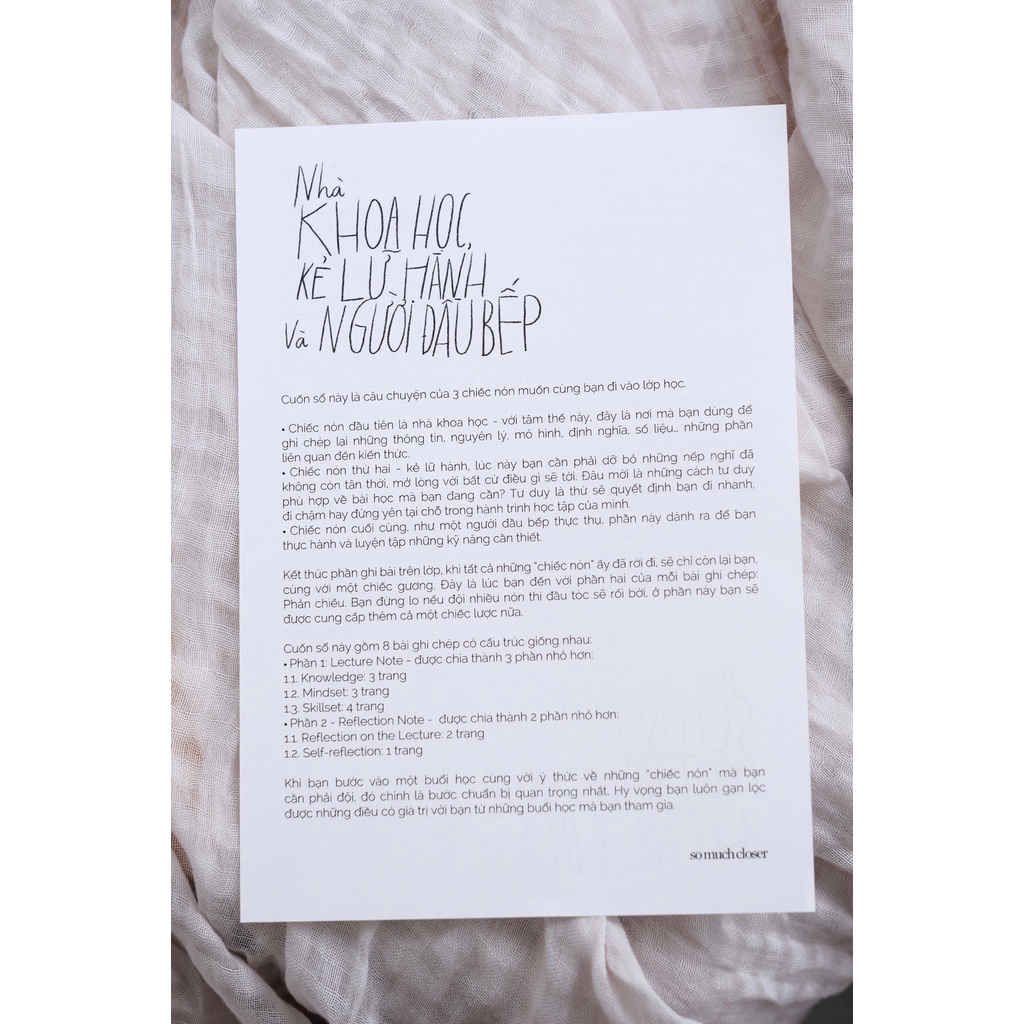 Nhà
KHOA HỌC,
KẺ LỮ HÀNH
Và NGƯỜI ĐẦU BẾP
Cuốn sổ này là câu chuyện của 3 chiếc nón muốn cùng bạn đi vào lớp học.
• Chiếc nón đầu tiên là nhà khoa học - với tâm thế này, đây là nơi mà bạn dùng để
ghi chép lại những thông tin, nguyên lý, mô hình, định nghĩa, số liệu… những phần
liên quan đến kiến thức.
• Chiếc nón thứ hai - kẻ lữ hành, lúc này bạn cần phải dỡ bỏ những nếp nghĩ đã
không còn tân thời, mở lòng với bất cứ điều gì sẽ tới. Đâu mới là những cách tư duy
phù hợp về bài học mà bạn đang cần? Tư duy là thứ sẽ quyết định bạn đi nhanh,
đi chậm hay đứng yên tại chỗ trong hành trình học tập của mình.
• Chiếc nón cuối cùng, như một người đầu bếp thực thụ, phần này dành ra để bạn
thực hành và luyện tập những kỹ năng cần thiết.
Kết thúc phần ghi bài trên lớp, khi tất cả những "chiếc nón" ấy đã rời đi, sẽ chỉ còn lại bạn,
cùng với một chiếc gương. Đây là lúc bạn đến với phần hai của mỗi bài ghi chép:
Phản chiếu. Bạn đừng lo nếu đội nhiều nón thì đầu tóc sẽ rối bời, ở phần này bạn sẽ
được cung cấp thêm cả một chiếc lược nữa.
Cuốn sổ này gồm 8 bài ghi chép có cấu trúc giống nhau:
• Phần 1: Lecture Note - được chia thành 3 phần nhỏ hơn:
1.1. Knowledge: 3 trang
1.2. Mindset: 3 trang
1.3. Skillset: 4 trang
• Phần 2 - Reflection Note - được chia thành 2 phần nhỏ hơn:
1.1. Reflection on the Lecture: 2 trang
1.2. Self-reflection: 1 trang
Khi bạn bước vào một buổi học cùng với ý thức về những "chiếc nón" mà bạn
cần phải đội, đó chính là bước chuẩn bị quan trọng nhất. Hy vọng bạn luôn gạn lọc
được những điều có giá trị với bạn từ những buổi học mà bạn tham gia.
so much closer